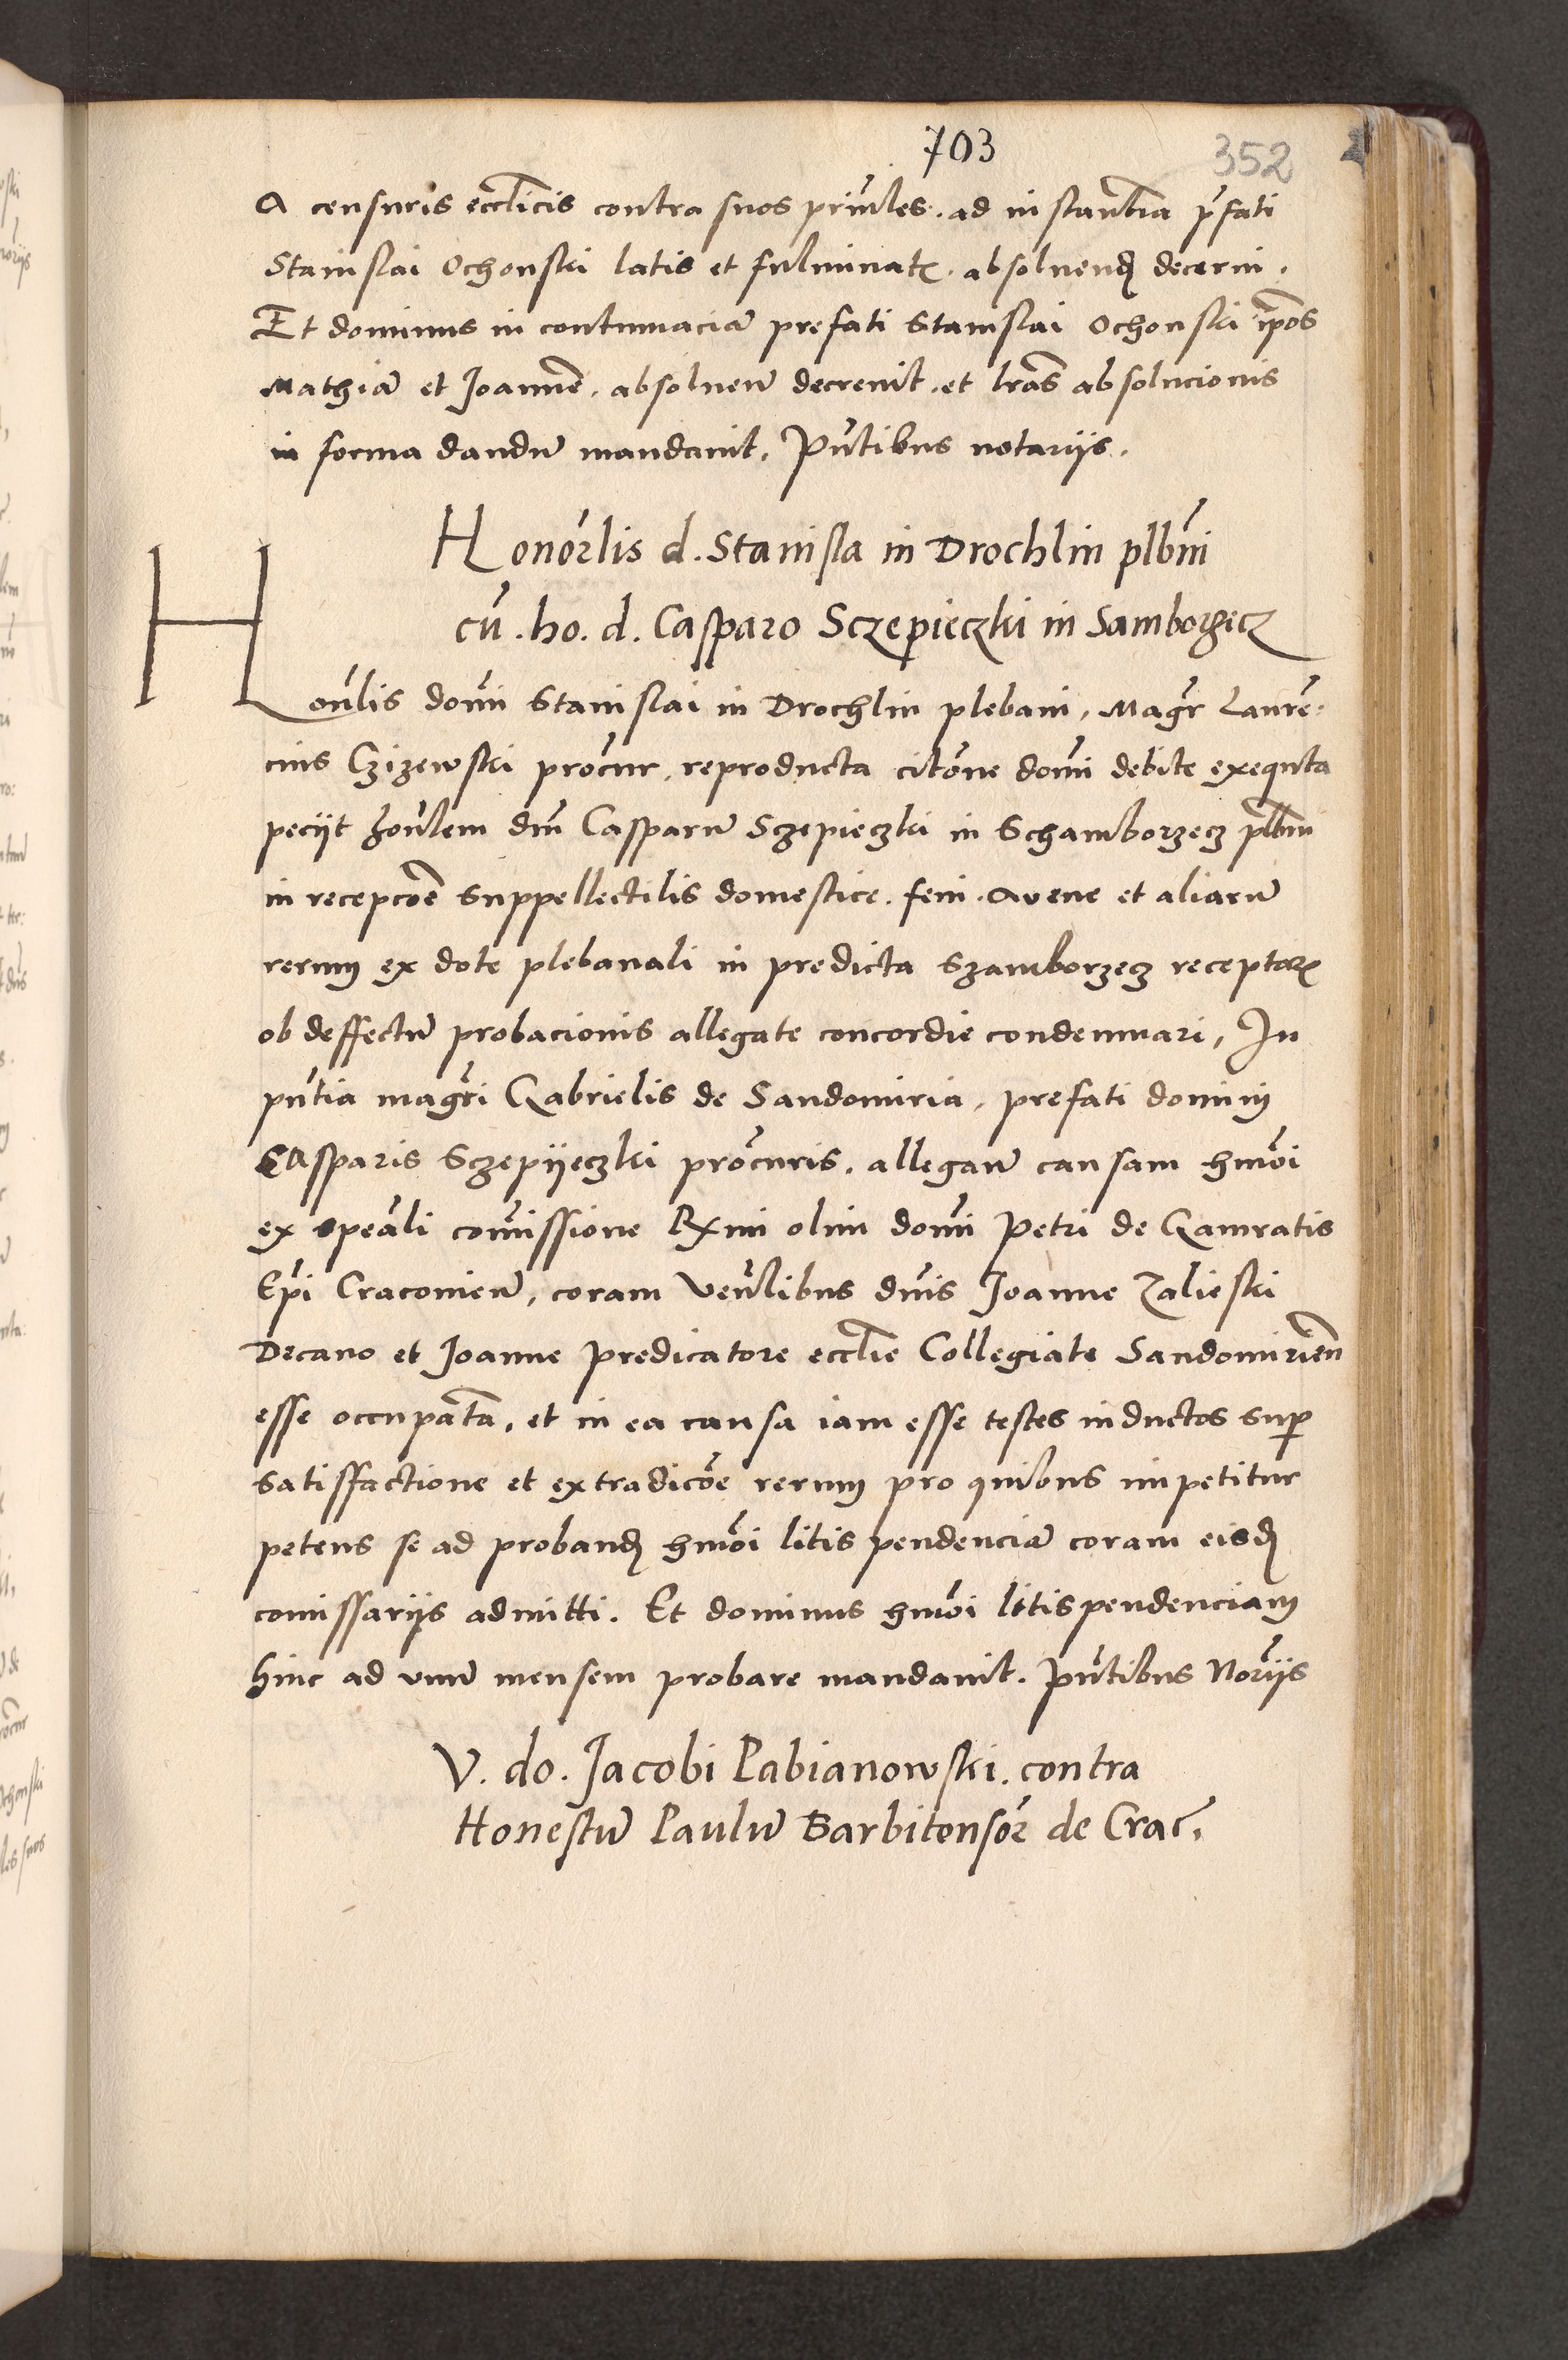 703
352
A censuris ecclicis contra suos prinčles. ad instantia p̃fati
Stanislai Ochonski latis et fulminatꝫ. absoluendꝫ decerni.
Et dominus in contumaciã prefati Stanislai Ochonski ip̃os
Mathiã et Joannẽ. absolueñ decreuit. et lrãs absolucionis
in forma dandũ mandauit. Pñtibus notarijs.
Honor̃lis d. Stanisla in Drochlin plbñi
cũ. ho. d. Casparo Sczepieczki in Samborzecz
Hoñlis domĩ Stanislai in Drochlin plebani, Magr̃ Laurẽ-
cius Czizewski procur̃, reproducta citõne domĩ debite exequta
pecijt hoñlem dñm Casparũ Sczepieczki in Schamborzecz plbñm
in recepcõẽ suppellectilis domestice. feni. Avene et aliarũ
rerum ex dote plebanali in predicta Szamborzecz receptarꝫ
ob deffectũ probacionis allegate concordie condemnari, In
pñtia magr̃i Gabrielis de Sandomiria, prefati domini
Casparis Sczepijeczki procũris. allegañ causam hmõi
ex speãli comĩssione Rxmi olim domĩ Petri de Gamratis
Ep̃i Cracouieñ, coram Veñlibus dñis Joanne Zalieski
Decano et Joanne predicatore eccl̃ie Collegiate Sandomirieñ
esse occupatã. et in ea causa iam esse testes inductos sup̱
satisffactione et extradicõe rerum pro quibus impetitur
petens se ad probandꝫ hmõi litis pendenciã coram eisdꝫ
comissarijs admitti. Et dominus hmõi litispendenciam
hinc ad vnũ mensem probare mandauit. Pñtibus Nor̃ijs
V. do. Jacobi Pabianowski. contra
Honestũ Paulũ Barbitonsor̃ de Crac̃.